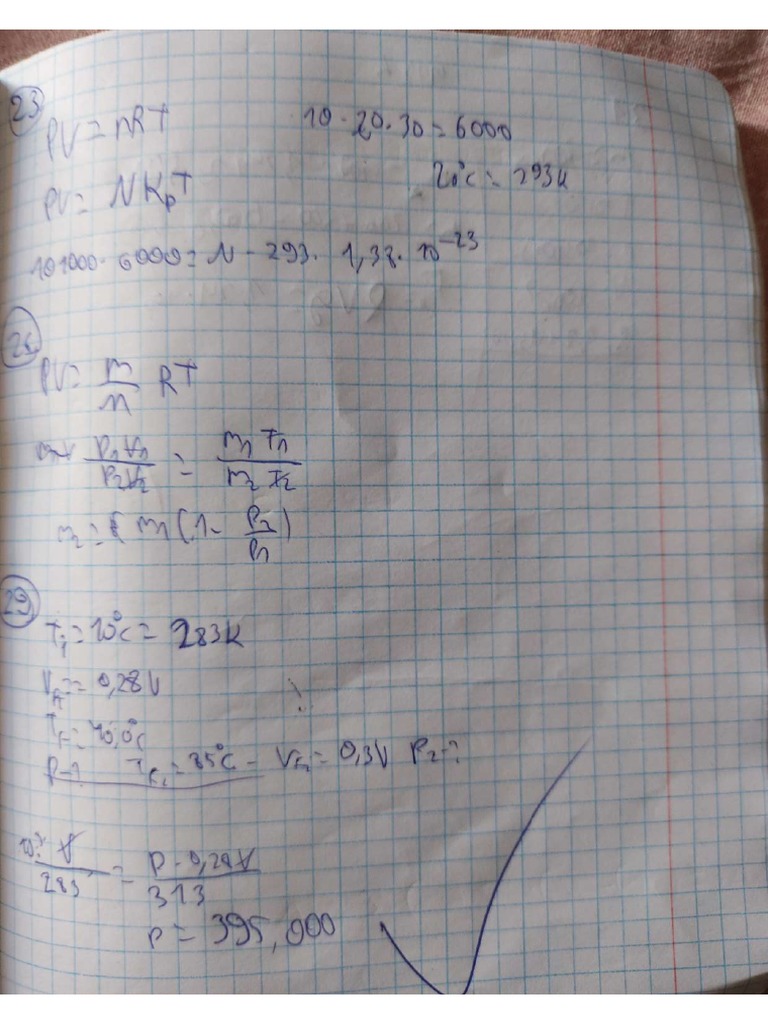 23
PV = nRT 10 · 20 · 30 = 6000
PV = NKpT 20°C = 293K
101000 · 6000 = N - 293 · 1,38 · 10^-23
PV = m/M RT
P1V1/P2V2 = m1T1/m2T2
m2 = m1(1 - P2/P1)
29
T1 = 10°C = 283K
= 0,28V
= 40,0°C
P-? = 85°C - = 0,3V P2-?
V/283 = P · 0,28V/313
P = 395,000